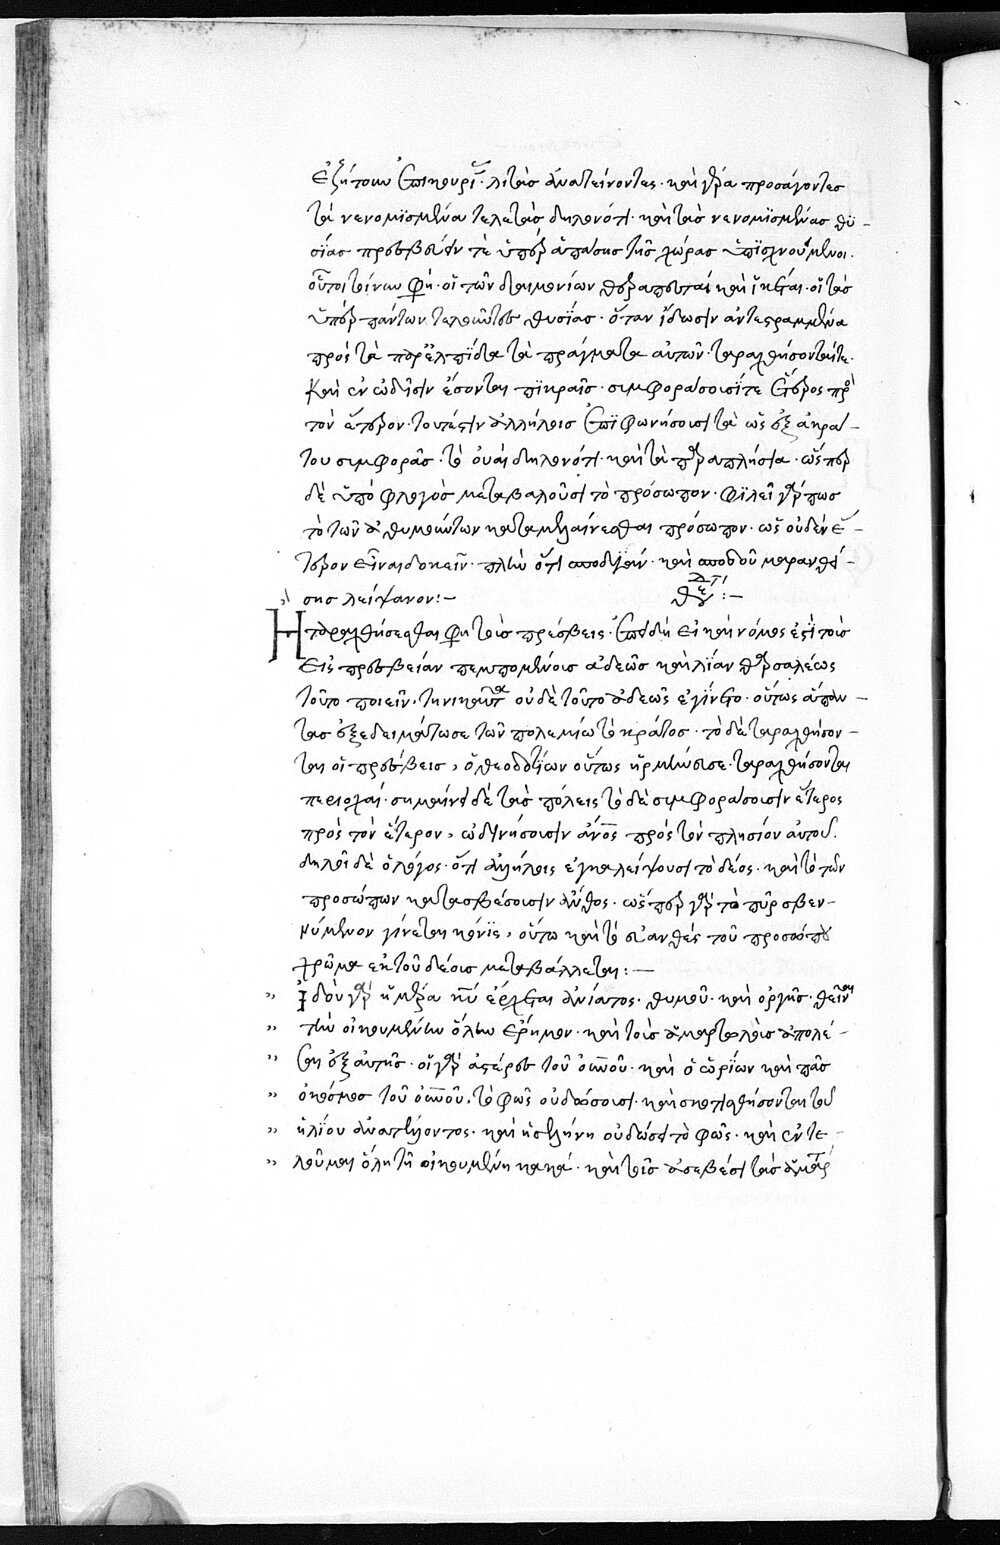 ἐζήτουν ἐπικουρί· λιτὰς ἀνατείνοντες· καὶ γέρα προσάγοντες
τὰ νενομϊσμένα τελετὰς δηλονότι· καὶ τὰς νενομϊσμένας θϋ-
σίας πρεσβεύειν τὲ ὑπὲρ ἁπάσης τῆς χώρας ὑπϊσχνούμενοι.
οὗτοι τοίνυν φη· οἱ τῶν δαιμονίων θεραπευταὶ καὶ ἱκέται· οἱ τὰς
ὑπὲρ πάντων τελοῦντες θυσΐας· ὅταν ἴδωσιν ἀντεστραμμένα
πρὸς τὰ παρ' ἐλπΐδα τὰ πράγματα αὐτῶν· ταραχθήσονταί τε·
καὶ ἐν ὠδῖσιν ἔσονται πϊκραῖς· συμφοράσουσΐ τε ἕτερος πρὸς
τὸν ἕτερον· τουτέστιν ἀλλήλοις ἐπϊφωνήσουσι τὰ ὡς ἐξ ἀκρά-
του συμφορᾶς· τὸ οὐαὶ δηλονότι· καὶ τὰ παραπλήσια· ὥσπερ
δὲ ὑπὸ φλογὸς μεταβαλοῦσι τὸ πρόσωπον· φϊλεῖ γάρ πως
τὸ τῶν ἀθυμούντων καταμελαίνεσθαι πρόσωπον· ὡς οὐδὲν ἕ-
τερον εἶναι δοκεῖν· πλὴν ὅτι ἀποδεῖν· καὶ ἀπὸ θεοῦ μαρανθεί-
σης λείψανον:-
Η ταραχθήσεσθαι φη τοὺς πρέσβεις· ἐπειδὴ εἰ καὶ νόμος ἐστὶ τοῖς
εἰς πρεσβείαν πεμπομένοις ἀδεῶς καὶ λίαν θαρσαλέως
τοῦτο ποιεῖν· τηνικαῦτα οὐδὲ τοῦτο ἀδεῶς ἐγΐνετο· οὕτως ἅπαν-
τας ἐξεδειμάτωσε τῶν πολεμίων τὸ κράτος· τὸ δὲ ταραχθήσον-
ται οἱ πρέσβεις, ὁ θεοδοτίων οὕτως ἡρμήνευσε· ταραχθήσονται
περιοχαί· σημαίνει δὲ τὰς πόλεις τὸ δὲ συμφοράσουσιν ἕτερος
πρὸς τὸν ἕτερον, ὠδινήσουσιν ἄνος πρὸς τὸν πλησίον αὐτοῦ.
δηλοῖ δὲ ὁ λόγος· ὅτι ἀλλήλοις ἐγκαλείψουσι τὸ δέος· καὶ τὸ τῶν
προσώπων κατασβέσουσιν ἄνθος· ὥσπερ γὰρ τὸ πῦρ σβεν-
νύμενον γίνεται κόνϊς, οὕτω καὶ τὸ εὐανθὲς τοῦ προσώπου
χρῶμα ἐκ τοῦ δέους μεταβάλλεται:—
" Ἰδοὺ γὰρ ἡμέρα κυ ἔρχεται ἀνίατος· θυμοῦ· καὶ ὀργῆς· θεῖναι
" τὴν οἰκουμένην ὅλην ἔρημον· καὶ τοὺς ἁμαρτωλοὺς ἀπολέ-
" σαι ἐξ αὐτῆς· οἱ γὰρ ἀστέρες τοῦ οὐνοῦ· καὶ ὁ ὠρΐων καὶ πᾶς
" ὁ κόσμος τοῦ οὐνοῦ, τὸ φῶς οὐ δώσουσι· καὶ σκοτισθήσονται τοῦ
" ἡλίου ἀνατέλλοντος· καὶ ἡ σελήνη οὐ δώσει τὸ φῶς· καὶ ἐντε-
" λοῦμαι ὅλη τῆ οἰκουμένη κακά· καὶ τοῖς ἀσεβέσι τὰς ἁμαρ